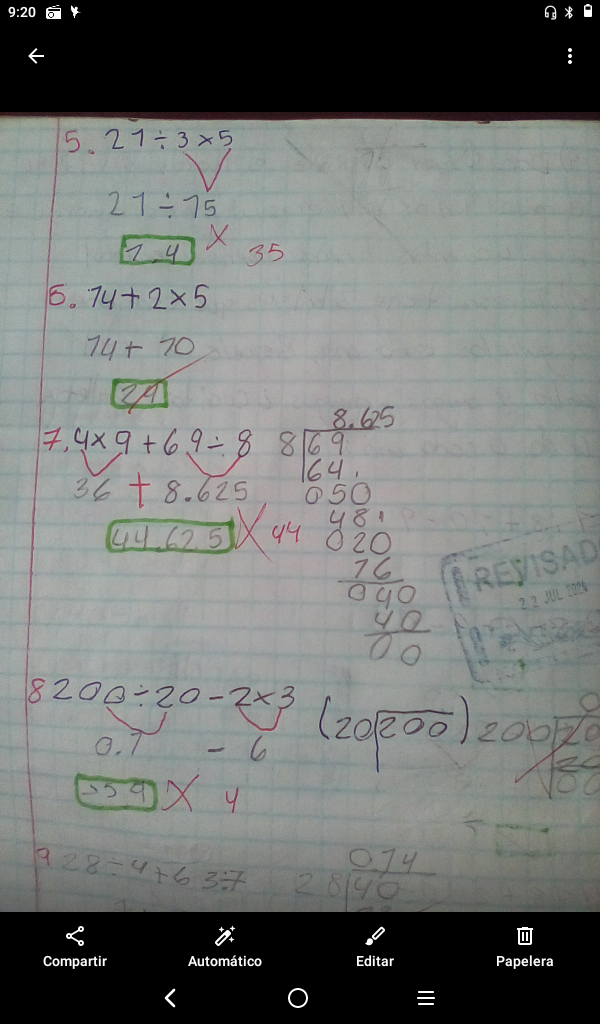 9:20
5. 21÷3×5
21÷15
1.4 × 35
6. 14+2×5
14+ 10
24
7. 4×9+69÷8
36 + 8.625
44.625 × 44
8.625
8 69
64
050
48
020
16
040
40
00
REVISAD
22 JUL
8 200÷20-2×3
0.1 - 6
× 4
(20 200)
200 20
20
00
÷
9 28÷4+63÷7
014
28 40
Compartir
Automático
Editar
Papelera